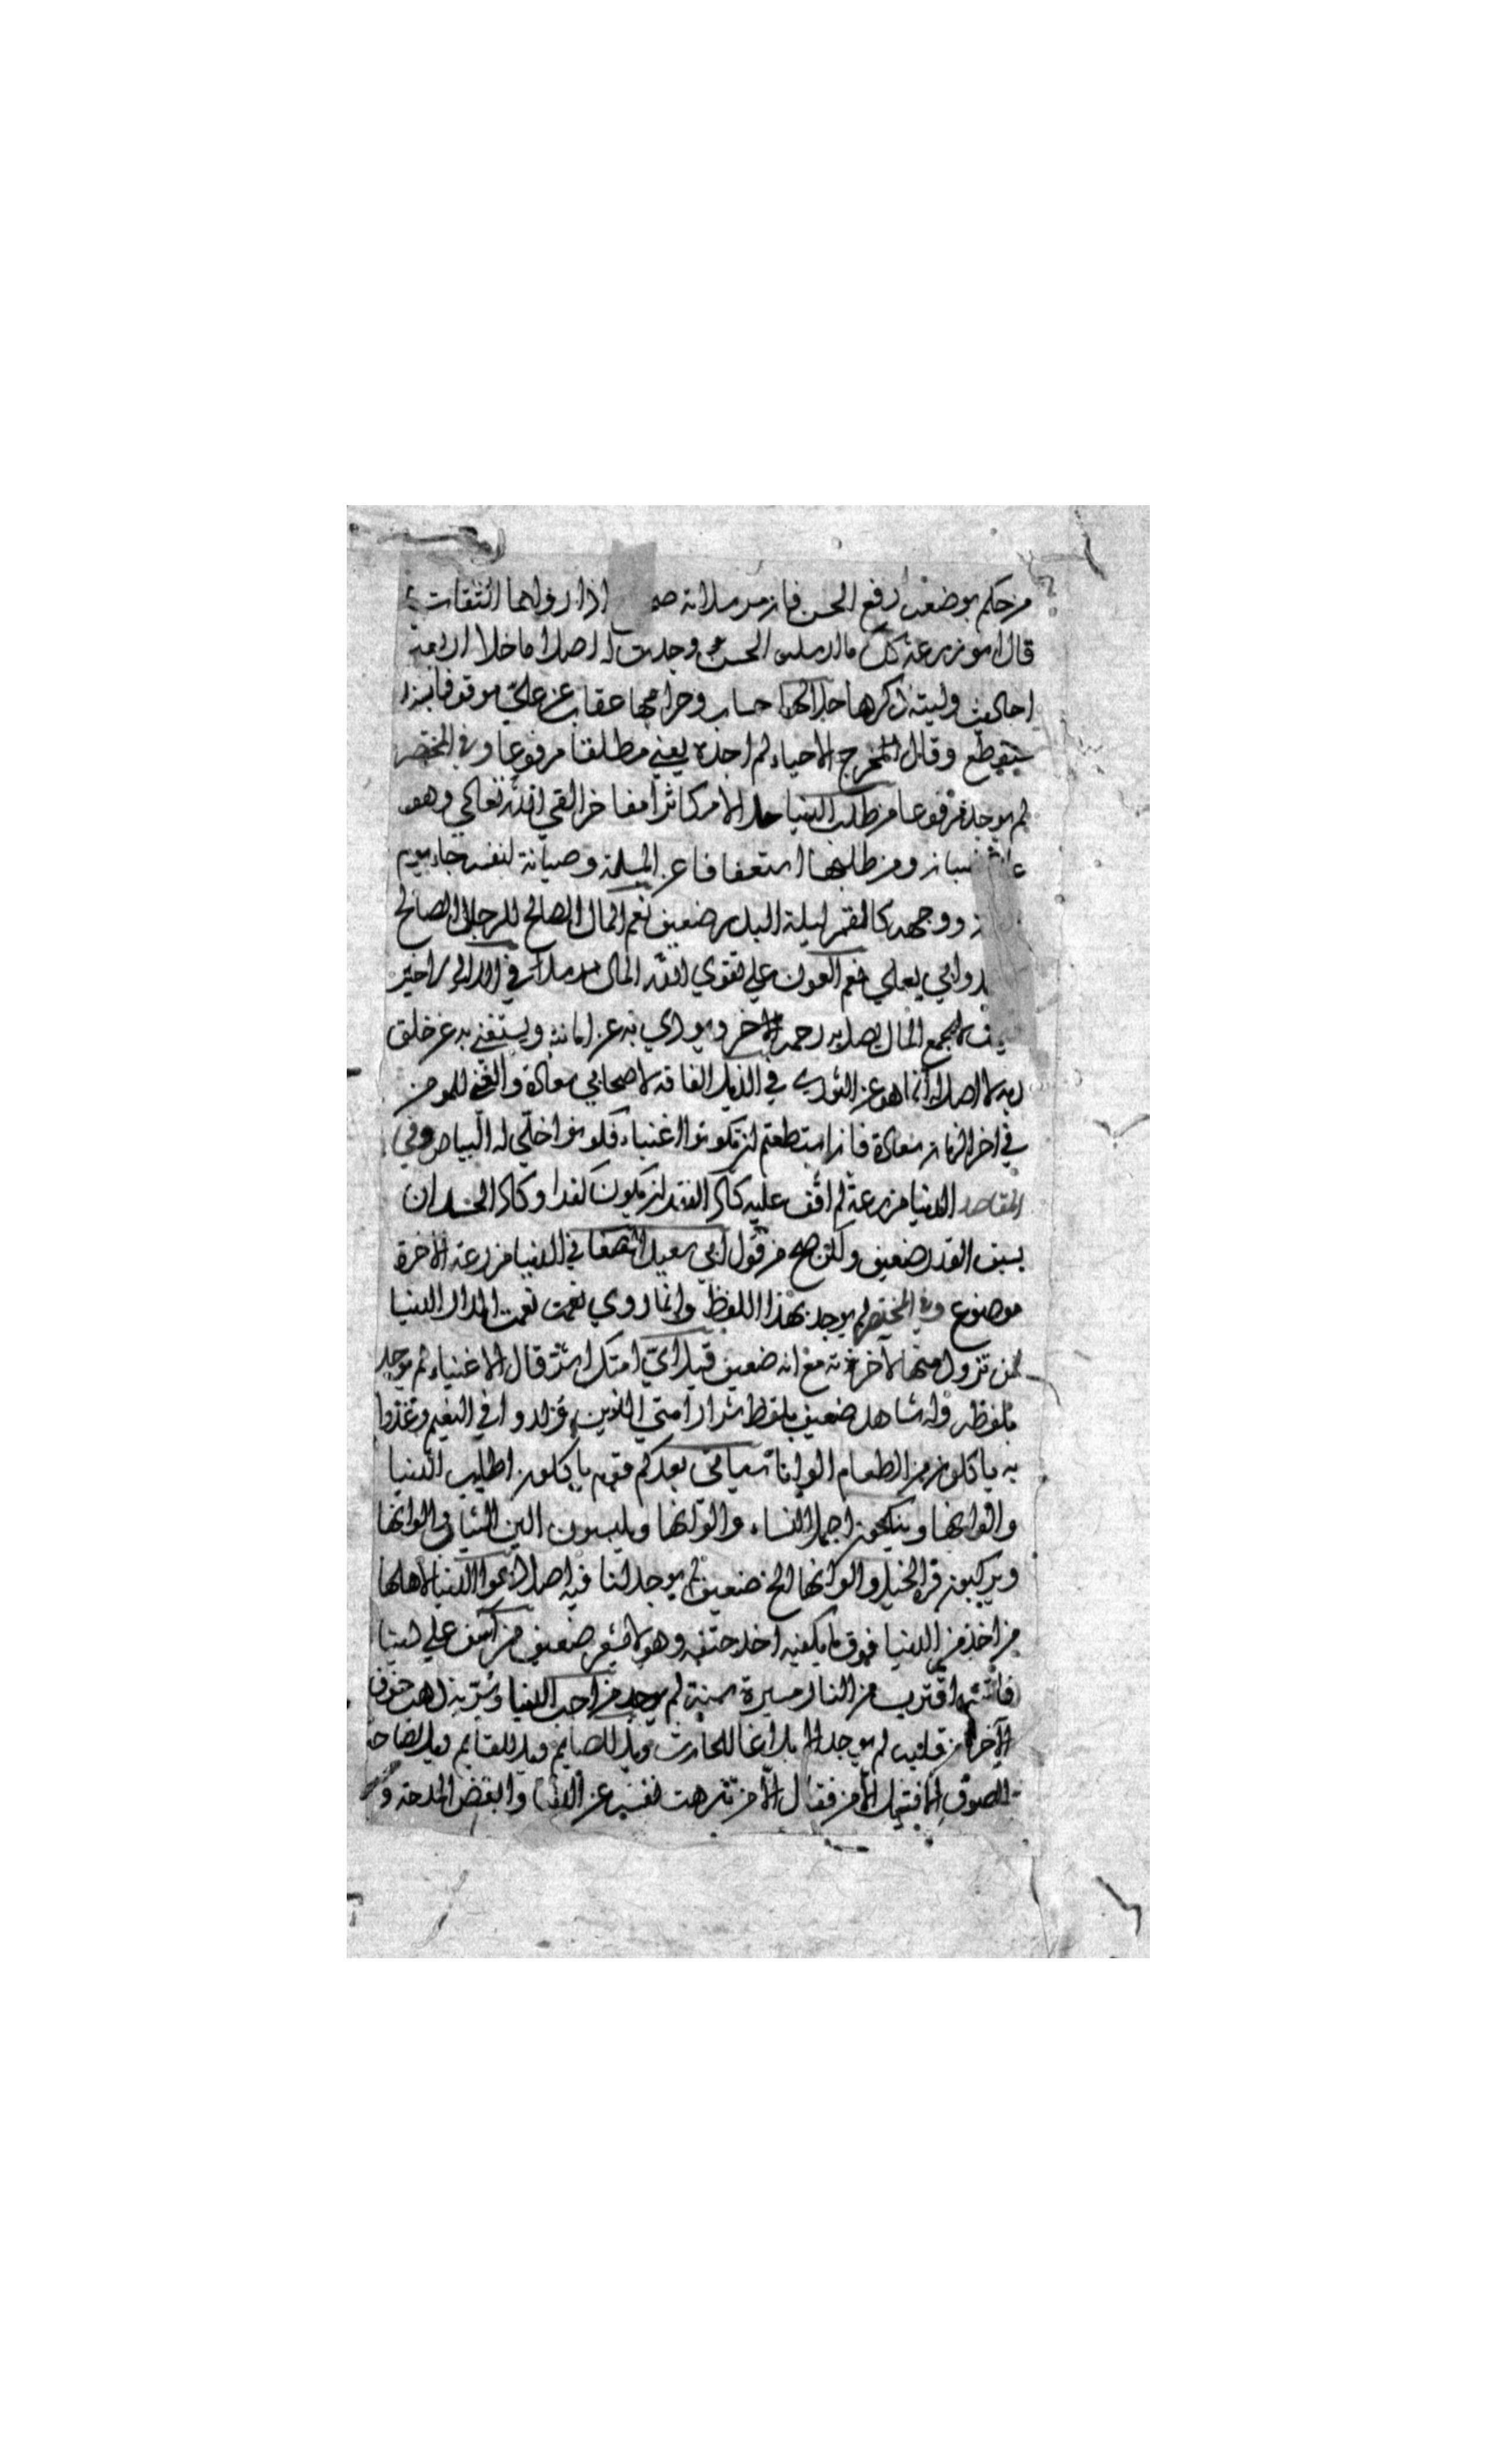 من حكم بوضعه رفع الحسن فان مرسلاته اذا رواها الثقات
قال ابو زرعة كل ما ارسله الحسن وجدت له اصلا ما خلا اربعة
احاديث وليته ذكرها حلالها حساب وحرامها عقاب عن علي موقوفا بسند
منقطع وقال المخرج الاحياء لم اجده يعني مطلقا مرفوعا وفي المختصر
لم يوجد مرفوعا من طلب الدنيا حلالا مكاثرا مفاخرا لقي الله تعالى وهو
ومن طلبها استعفافا عن المسلة وصيانة لنفسه جاء يوم
ووجهه كالقمر ليلة البدر ضعيف نعم المال الصالح للرجل الصالح
وابي يعلى نعم العون على تقوى الله المال مرسلا في لا خير
لا يجمع المال يصل به رحمه الاخر ويودي به عن امانته ويستغني به عن خلق
ربه لا اصل له انما هو عن الثوري في الذيل الفاقة لاصحابي سعادة والغنى للمومن
في اخر الزمان سعادة فان استطعتم ان تكونوا اغنياء فكونوا اخلي له البياض وفي
المقاصد الدنيا مزرعة لم اقف عليه كاد الفقر ان يكون كفرا وكاد الحسد ان
يسبق القدر ضعيف ولكن صح من قول ابي سعيد الصغاني الدنيا مزرعة الاخرة
موضوع وفي المختصر لم يوجد بهذا اللفظ وانما روي نعمت نعمت الدار الدنيا
لمن تزود منها لآخرته مع انه ضعيف قيل اي امتك اشر قال الاغنياء لم يوجد
بلفظه وله شاهد ضعيف بلفظ شرار امتي الذين ولدوا في النعيم وغذوا
به ياكلون من الطعام الوانا سياتي بعدكم قوم ياكلون اطايب الدنيا
والوانها وينكحون اجمل النساء والوانها ويلبسون الين الثياب والوانها
ويركبون فره الخيل والوانها الخ ضعيف لم يوجد لنا فيه اصل دعوا الدنيا لاهلها
من اخذ من الدنيا فوق ما يكفيه اخذ حتفه وهو لا يشعر ضعيف من اسف على دنيا
فاتته اقترب من النار مسيرة سنة لم يوجد من احب الدنيا وسر بها ذهب خوف
الآخرة من قلبه لم يوجد
الصوف فقال نفسي عن الدنيا